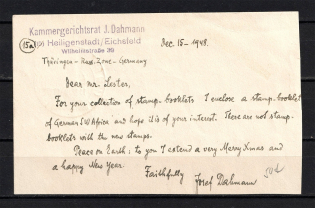 Kammergerichtsrat J. Dahmann
15a Heiligenstadt/Eichsfeld
Wilhelmstraße 39
Dec. 15-1948.
Thüringen - Russ. Zone - Germany
Dear Mr. Lester,
For your collection of stamp-booklets I enclose a stamp-booklet
of German S/W Africa and hope it is of your interest. There are not stamp-
booklets with the new stamps.
Peace on Earth; to you I extend a very Merry Xmas and
a happy New Year.
Faithfully Josef Dahmann